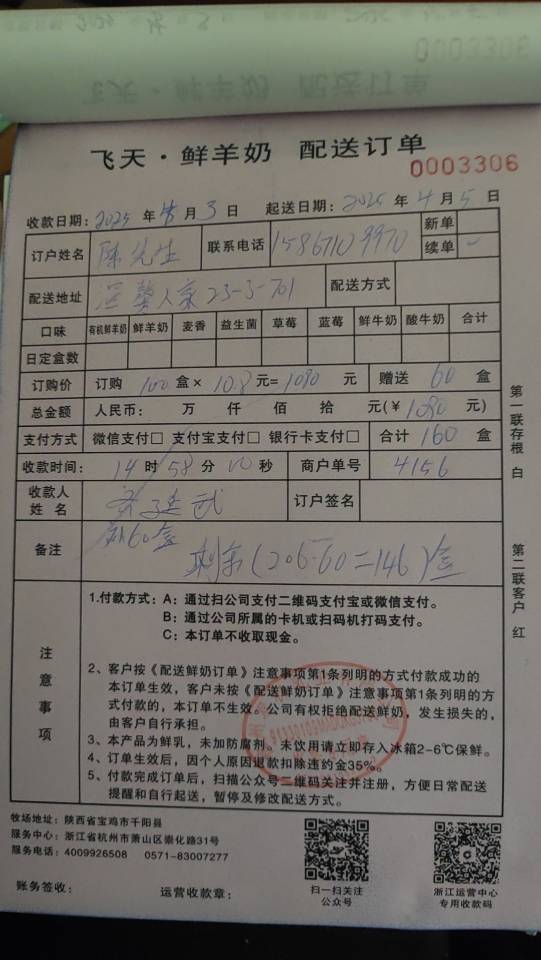 0003306
飞天·鲜羊奶 配送订单
0003306
收款日期：2025 年 4月 3 日 起送日期：2025 年 4 月 5 日
订户姓名 陈先生 联系电话 15867109970 新单
续单
配送地址 23-3-701 配送方式
口味 有机鲜羊奶 鲜羊奶 麦香 益生菌 草莓 蓝莓 鲜牛奶 酸牛奶 合计
日定盒数
订购价 订购 100 盒× 10.8 元= 1080 元 赠送 60 盒
总金额 人民币： 万 仟 佰 拾 元(￥1080 元)
支付方式 微信支付□ 支付宝支付□ 银行卡支付□ 合计 160 盒
收款时间： 14 时 58 分 10 秒 商户单号 4156
收款人
姓 名 订户签名
备注 60盒
剩余(206-60=146)盒
第一联存根 白
第二联客户 红
注意事项
1.付款方式：A：通过扫公司支付二维码支付宝或微信支付。
B：通过公司所属的卡机或扫码机打码支付。
C：本订单不收取现金。
2、客户按《配送鲜奶订单》注意事项第1条列明的方式付款成功的
本订单生效，客户未按《配送鲜奶订单》注意事项第1条列明的方
式付款的，本订单不生效。公司有权拒绝配送鲜奶，发生损失的，
由客户自行承担。
3、本产品为鲜乳，未加防腐剂。未饮用请立即存入冰箱2-6℃保鲜。
4、订单生效后，因个人原因退款扣除违约金35%。
5、付款完成订单后，扫描公众号二维码关注并注册，方便日常配送
提醒和自行起送，暂停及修改配送方式。
牧场地址：陕西省宝鸡市千阳县
服务中心：浙江省杭州市萧山区崇化路31号
服务电话：4009926508 0571-83007277
账务签收： 运营收款章：
扫一扫关注
公众号
浙江运营中心
专用收款码